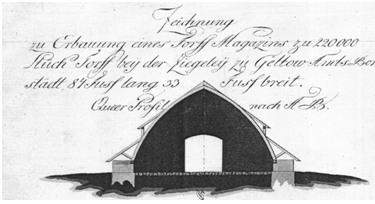 Zeichnung
zu Erbauung eines Torff Magazins zu 220000
Stück Torff bey der Ziegeley zu Geltow Ambts Bor
stadt 87 Fuss lang 33 Fuss breit.
Queer Profil nach A–B.